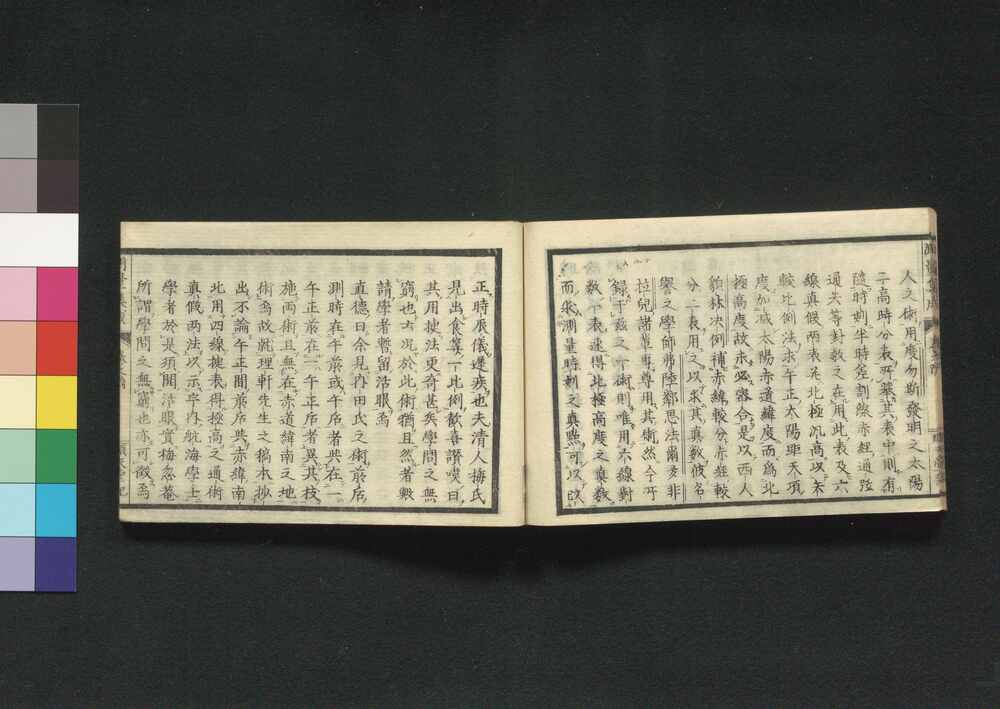 人之術用度勿斯發明之太陽
二高時分表所葉其表中則有
隨時刻半時差割然赤經通弦
通矢等對數之在用此表及六
線真假兩表先北極汎高以矢
較比例法求午正太陽距天頂
度加減太陽赤道緯度而為北
極高度故求密合是以西人
林决例補赤緯較分赤經較
分二表用之以求其真數彼名
譽之學師弗陸鄰思法爾多非
拉兒諸輩專尊用其術然今
錄于茲之術則唯用六線對
數一表速得北極高度之真數
而求測量時刻之真點可以改
正時辰儀遲疾也夫清人梅氏
見出食算一比例歓喜讃嘆曰
其用捷法更奇甚矣學問之無
窮也去况於此術猶且然者觀
請學者暫留活眼焉
直德曰余見内田氏之術前后
測時在午前或午后者與在一
午正前在一午正后者異其技
施兩術且無在赤道緯南之地
術焉故就理軒先生之稿本抄
出不論午正間前后與赤緯南
此用四線捷表得極高之通術
真假兩法以示宇内航海學士
學者於是須開活眼實梅忽菴
所謂學問之無窮也亦可徵焉